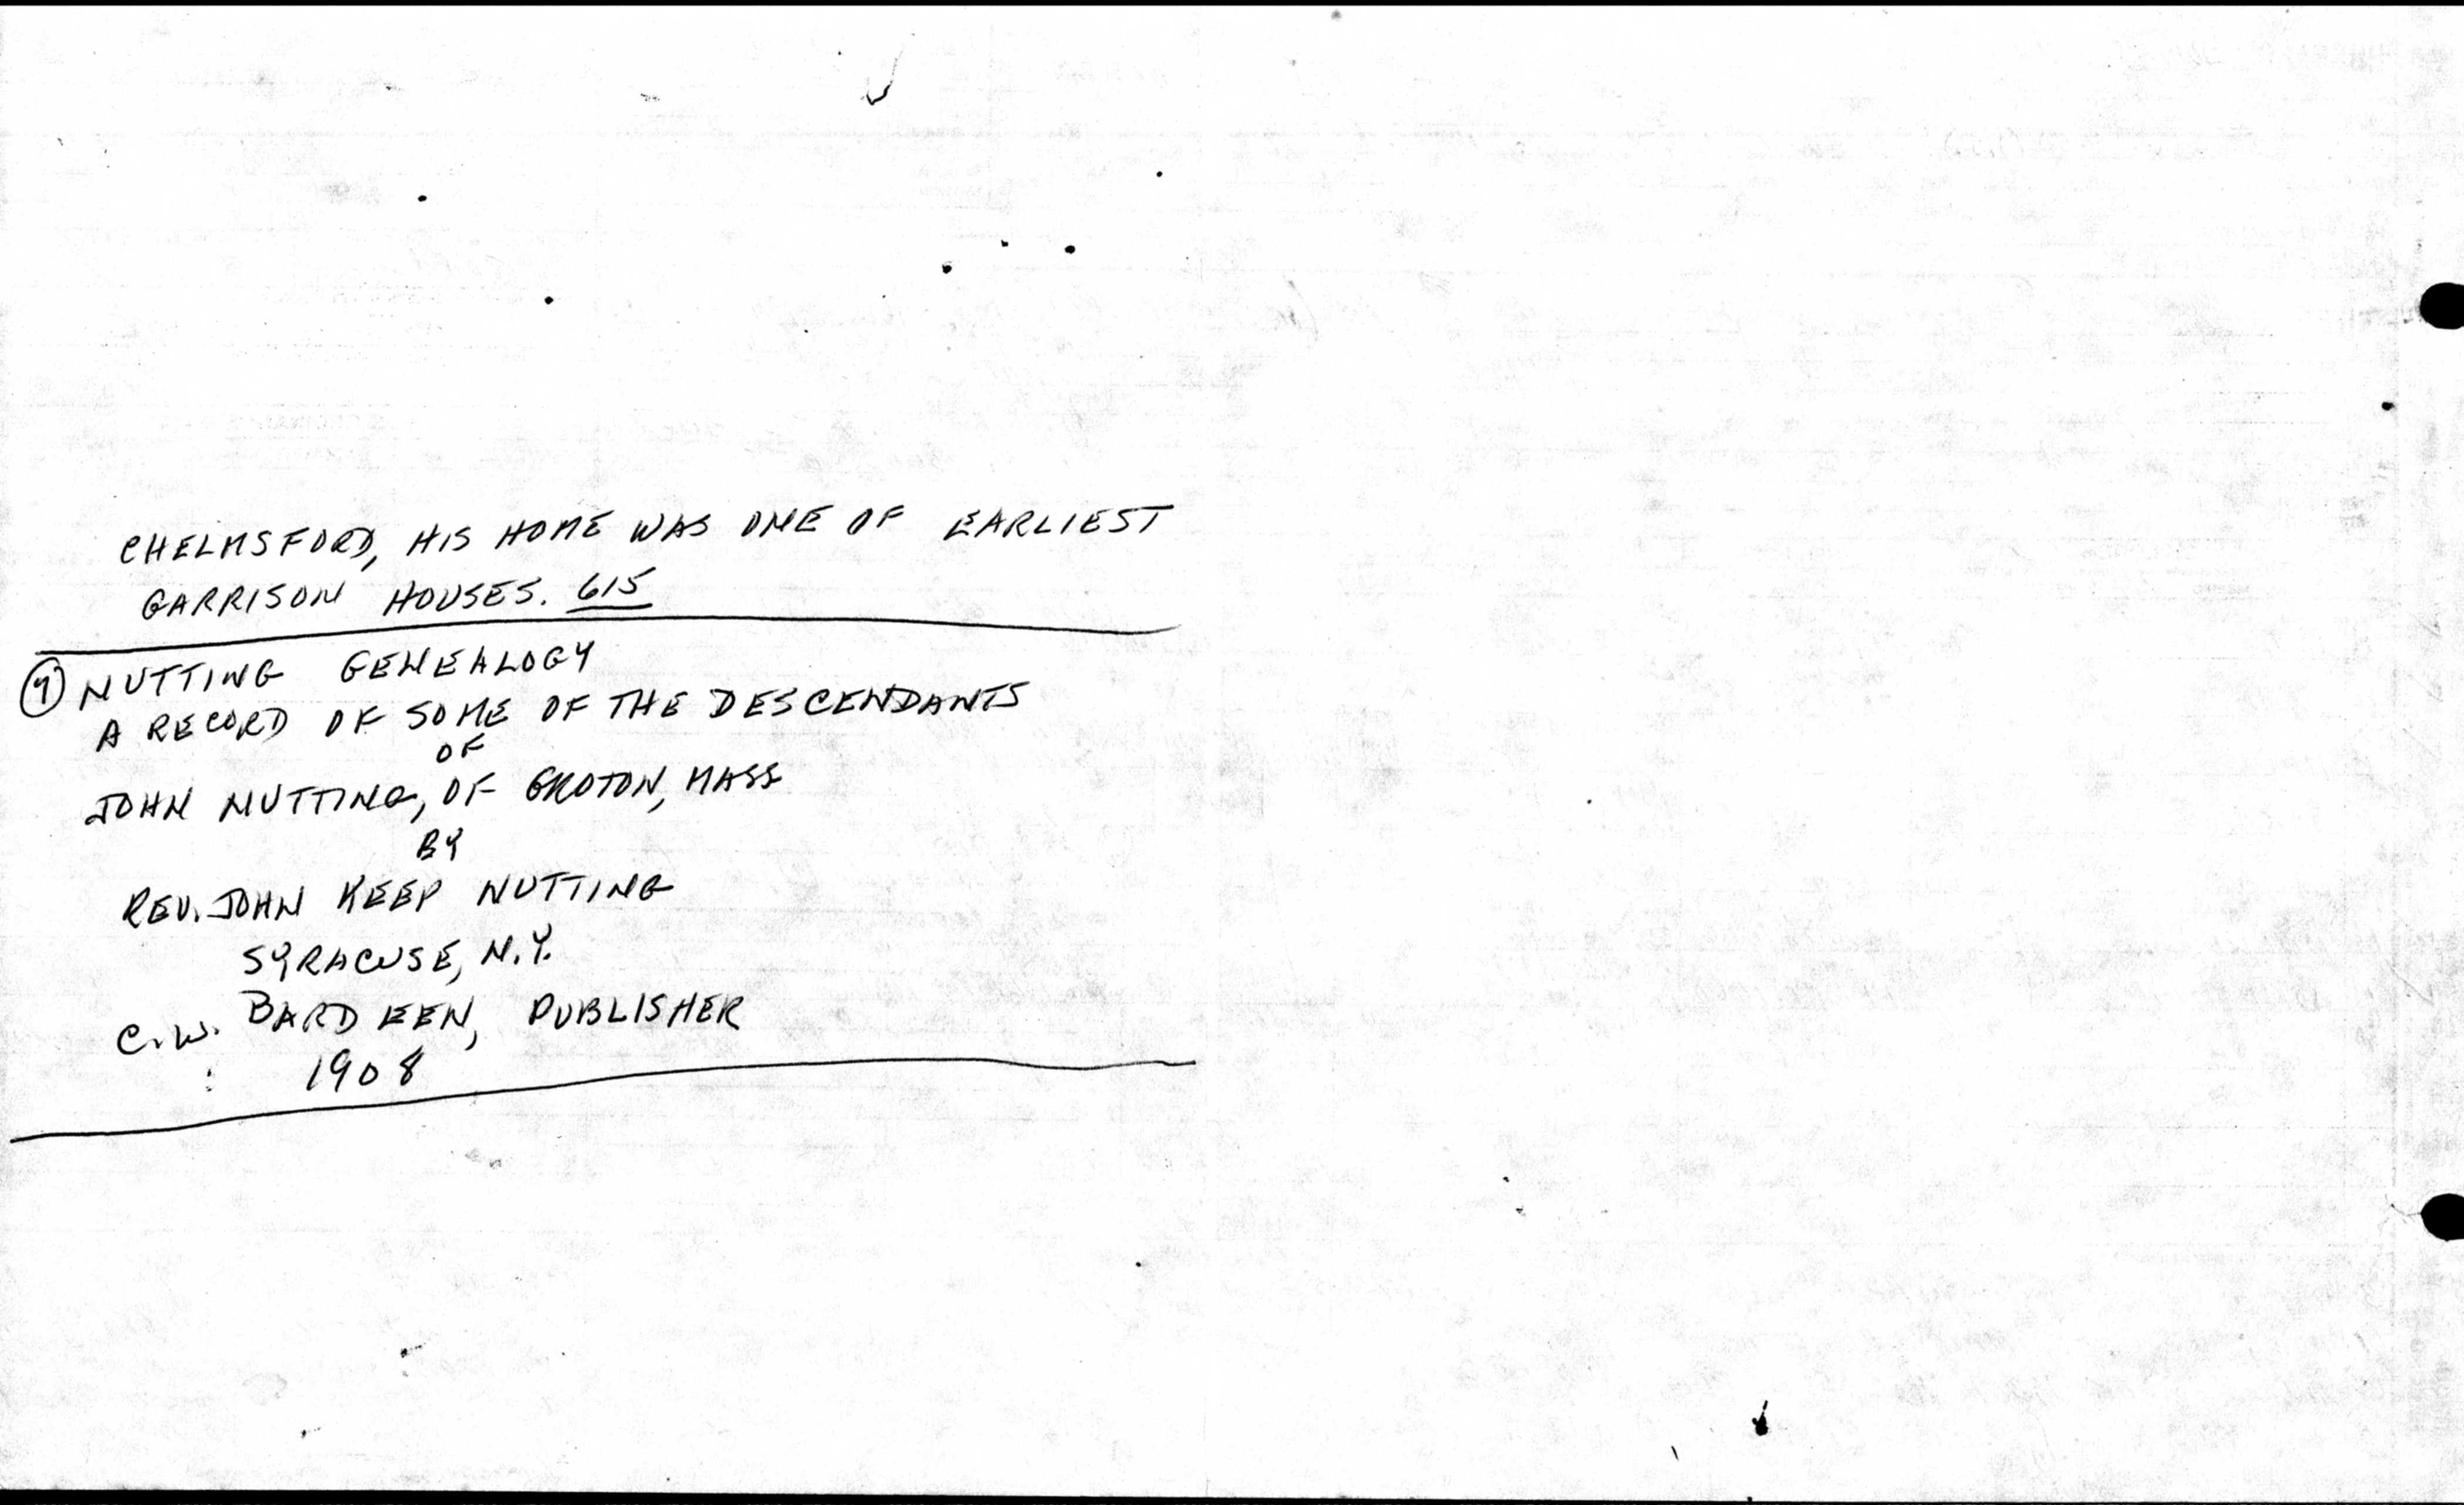 CHELMSFORD, HIS HOME WAS ONE OF EARLIEST
GARRISON HOUSES. 615
9 NUTTING GENEALOGY
A RECORD OF SOME OF THE DESCENDANTS
OF
JOHN NUTTING, OF GROTON, MASS
BY
REV. JOHN KEEP NUTTING
SYRACUSE, N.Y.
C.W. BARDEEN, PUBLISHER
1908